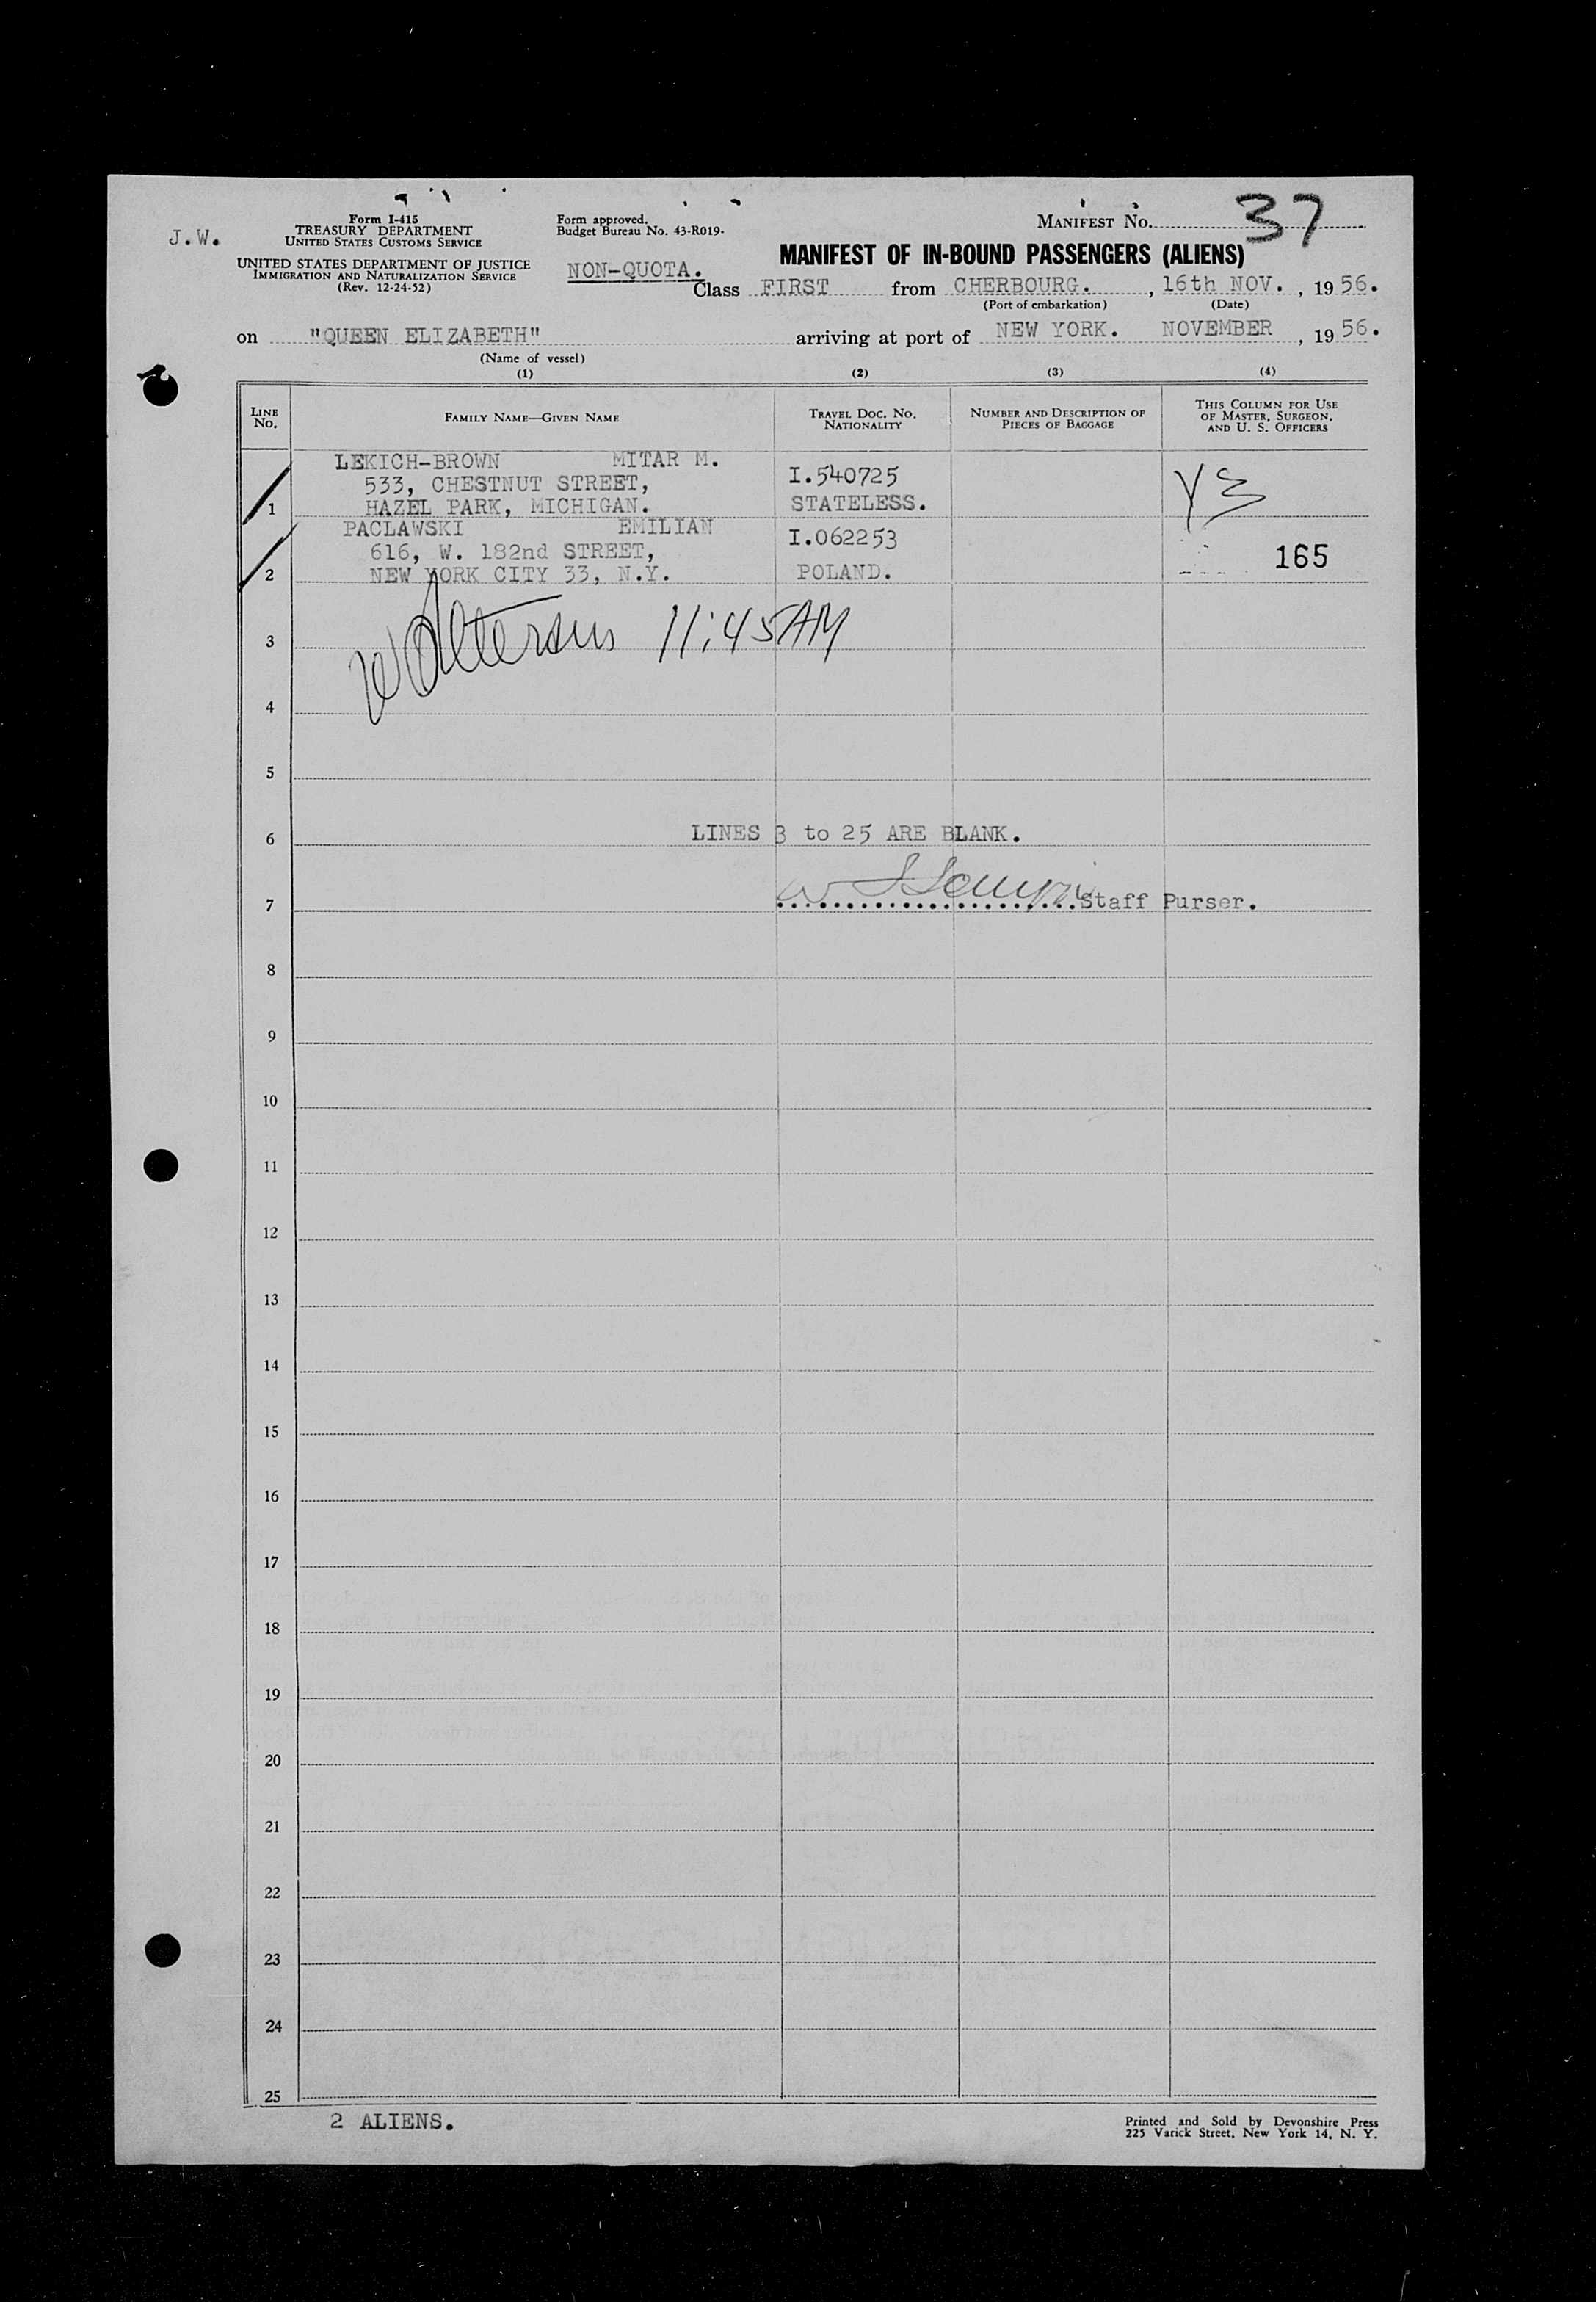 J.W.
Form I-415
TREASURY DEPARTMENT
UNITED STATES CUSTOMS SERVICE
UNITED STATES DEPARTMENT OF JUSTICE
IMMIGRATION AND NATURALIZATION SERVICE
(Rev. 12-24-52)
Form approved.
Budget Bureau No. 43-R019-
NON-QUOTA.
MANIFEST NO. 37
MANIFEST OF IN-BOUND PASSENGERS (ALIENS)
Class FIRST from CHERBOURG. , 16th NOV. , 1956.
(Port of embarkation) (Date)
on "QUEEN ELIZABETH" arriving at port of NEW YORK. NOVEMBER , 1956.
(Name of vessel)
(1) (2) (3) (4)
LINE NO.
FAMILY NAME—GIVEN NAME
TRAVEL DOC. NO.
NATIONALITY
NUMBER AND DESCRIPTION OF
PIECES OF BAGGAGE
THIS COLUMN FOR USE
OF MASTER, SURGEON,
AND U. S. OFFICERS
LEKICH-BROWN MITAR M.
533, CHESTNUT STREET, I.540725
1 HAZEL PARK, MICHIGAN. STATELESS.
PACLAWSKI EMILIAN
616, W. 182nd STREET, I.062253 165
2 NEW YORK CITY 33, N.Y. POLAND.
3 11:45 AM
4
5
6 LINES 3 to 25 ARE BLANK.
7 Staff Purser.
8
9
10
11
12
13
14
15
16
17
18
19
20
21
22
23
24
25
2 ALIENS.
Printed and Sold by Devonshire Press
225 Varick Street, New York 14, N. Y.